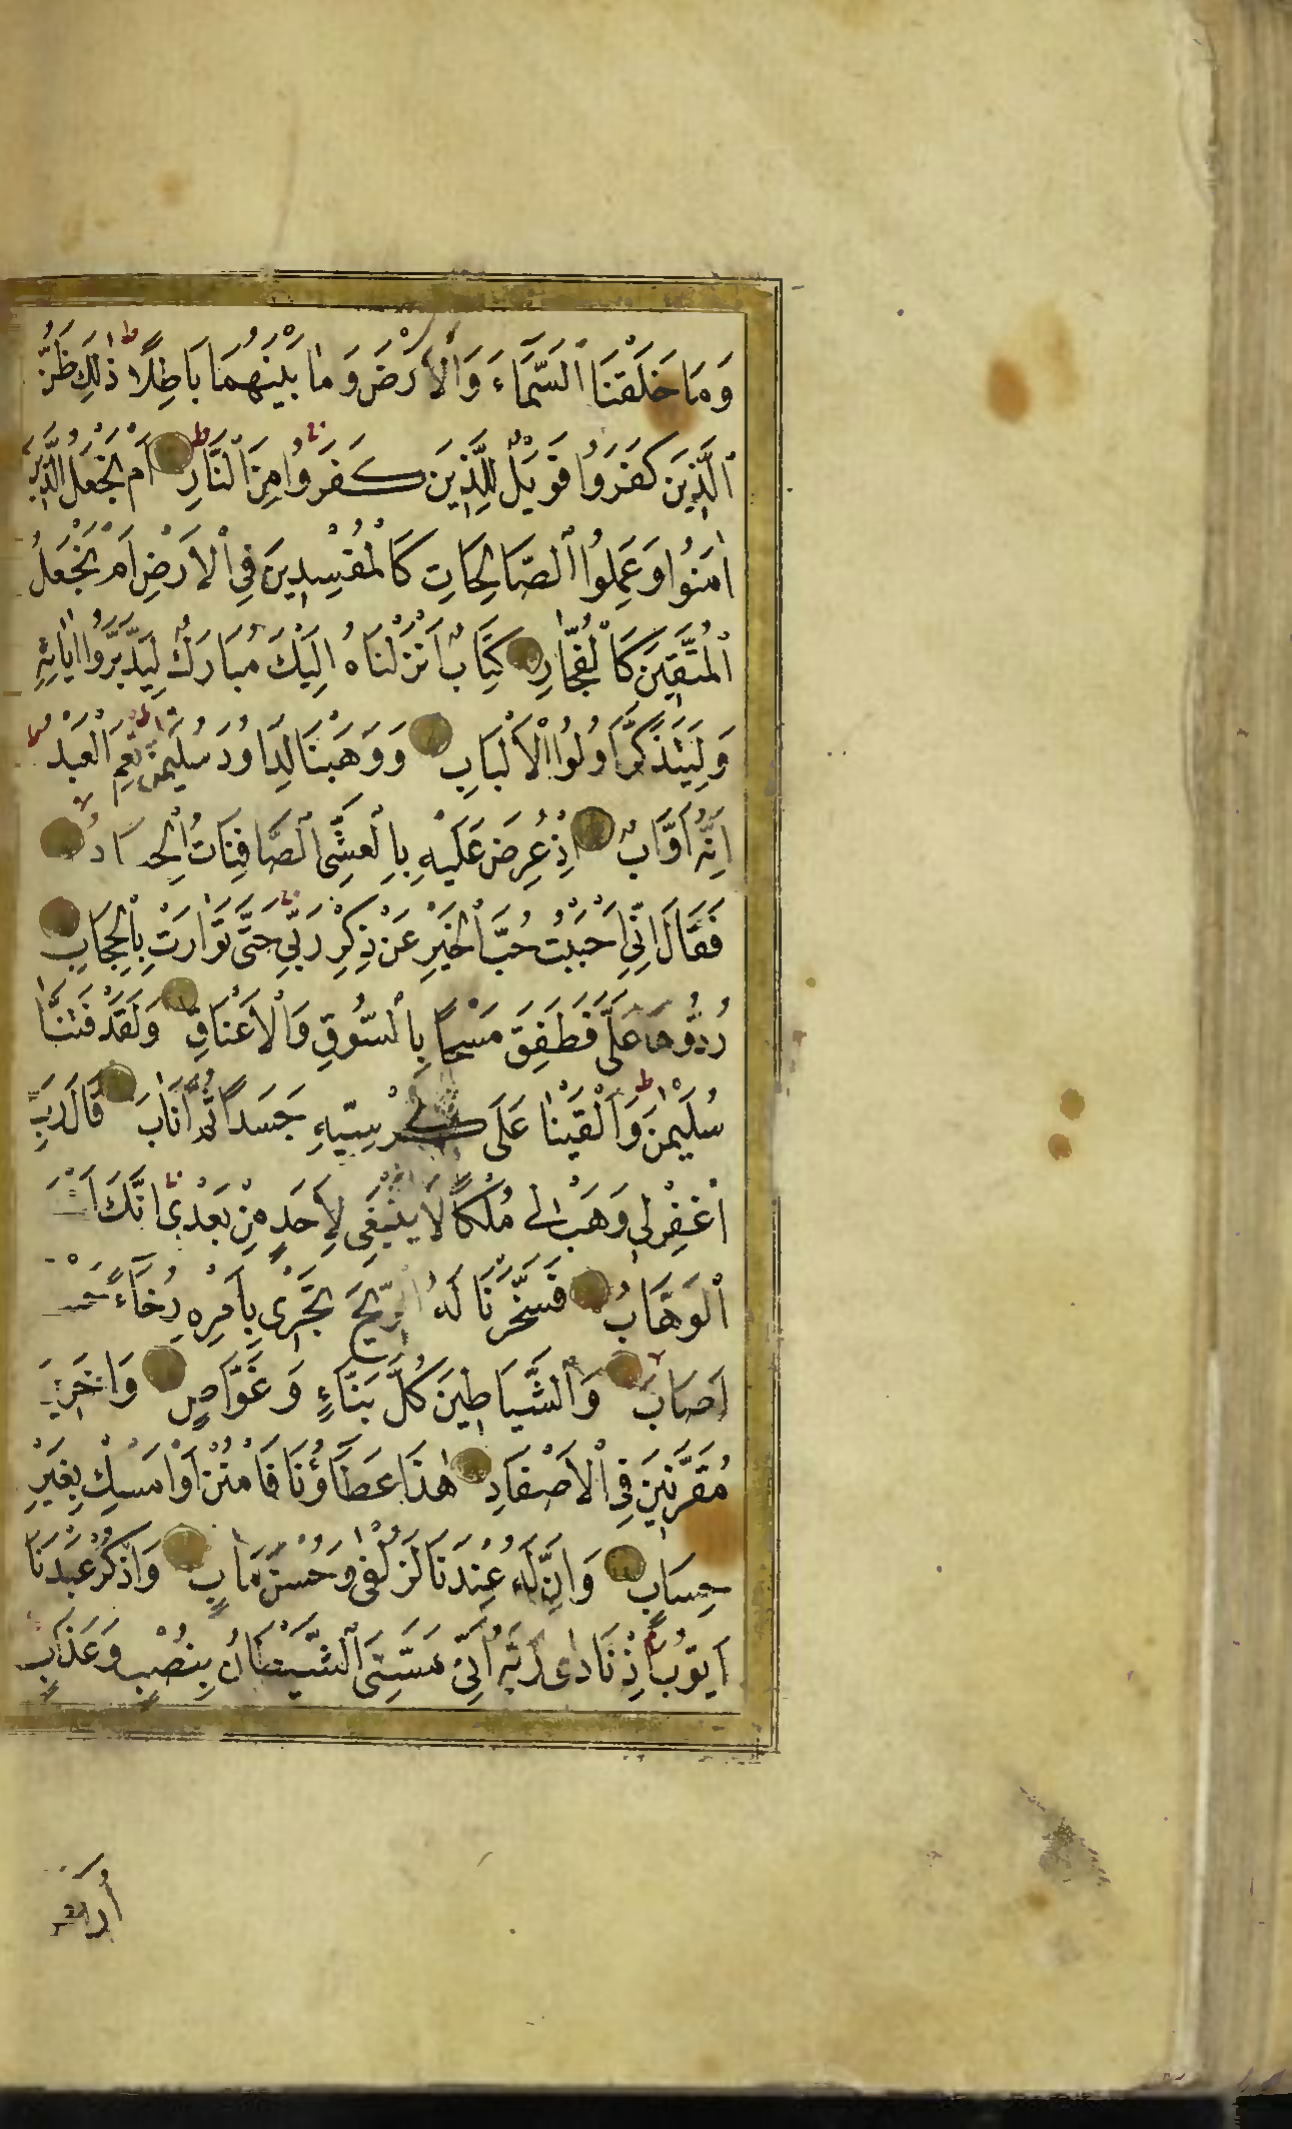 وَمَا خَلَقْنَا ٱلسَّمَآءَ وَٱلْأَرْضَ وَمَا بَيْنَهُمَا بَاطِلًا ط ذٰلِكَ ظَنُّ
ٱلَّذِينَ كَفَرُوا فَوَيْلٌ لِلَّذِينَ كَفَرُوا مِنَ ٱلنَّارِ ط اَمْ نَجْعَلُ الَّذِينَ
اٰمَنُوا وَعَمِلُوا ٱلصَّالِحَاتِ كَالْمُفْسِدِينَ فِي ٱلْاَرْضِ اَمْ نَجْعَلُ
ٱلْمُتَّقِينَ كَالْفُجَّارِ كِتَابٌ اَنْزَلْنَاهُ اِلَيْكَ مُبَارَكٌ لِيَدَّبَّرُوا اٰيَاتِهِ
وَلِيَتَذَكَّرَ اُولُوا ٱلْاَلْبَابِ وَوَهَبْنَا لِدَاوُدَ سُلَيْمٰنَ ط نِعْمَ الْعَبْدُ ط
اِنَّهُ اَوَّابٌ اِذْ عُرِضَ عَلَيْهِ بِالْعَشِيِّ ٱلصَّافِنَاتُ الْجِيَادُ لا
فَقَالَ اِنِّي اَحْبَبْتُ حُبَّ ٱلْخَيْرِ عَنْ ذِكْرِ رَبِّي حَتَّى تَوَارَتْ بِالْحِجَابِ
رُدُّوهَا عَلَيَّ فَطَفِقَ مَسْحًا بِالسُّوقِ وَالْاَعْنَاقِ وَلَقَدْ فَتَنَّا
سُلَيْمٰنَ ط وَاَلْقَيْنَا عَلَى كُرْسِيِّهِ جَسَدًا ثُمَّ اَنَابَ قَالَ رَبِّ
اغْفِرْ لِي وَهَبْ لِي مُلْكًا لَا يَنْبَغِي لِاَحَدٍ مِنْ بَعْدِي اِنَّكَ اَنْتَ
ٱلْوَهَّابُ فَسَخَّرْنَا لَهُ الرِّيحَ تَجْرِي بِاَمْرِهِ رُخَآءً حَيْثُ
اَصَابَ لا وَٱلشَّيَاطِينَ كُلَّ بَنَّاءٍ وَغَوَّاصٍ وَاٰخَرِينَ
مُقَرَّنِينَ فِي ٱلْاَصْفَادِ هٰذَا عَطَآؤُنَا فَامْنُنْ اَوْ اَمْسِكْ بِغَيْرِ
حِسَابٍ وَاِنَّ لَهُ عِنْدَنَا لَزُلْفٰى وَحُسْنَ مَاٰبٍ وَاذْكُرْ عَبْدَنَا
اَيُّوبَ اِذْ نَادٰى رَبَّهُ اَنِّي مَسَّنِيَ ٱلشَّيْطَانُ بِنُصْبٍ وَعَذَابٍ